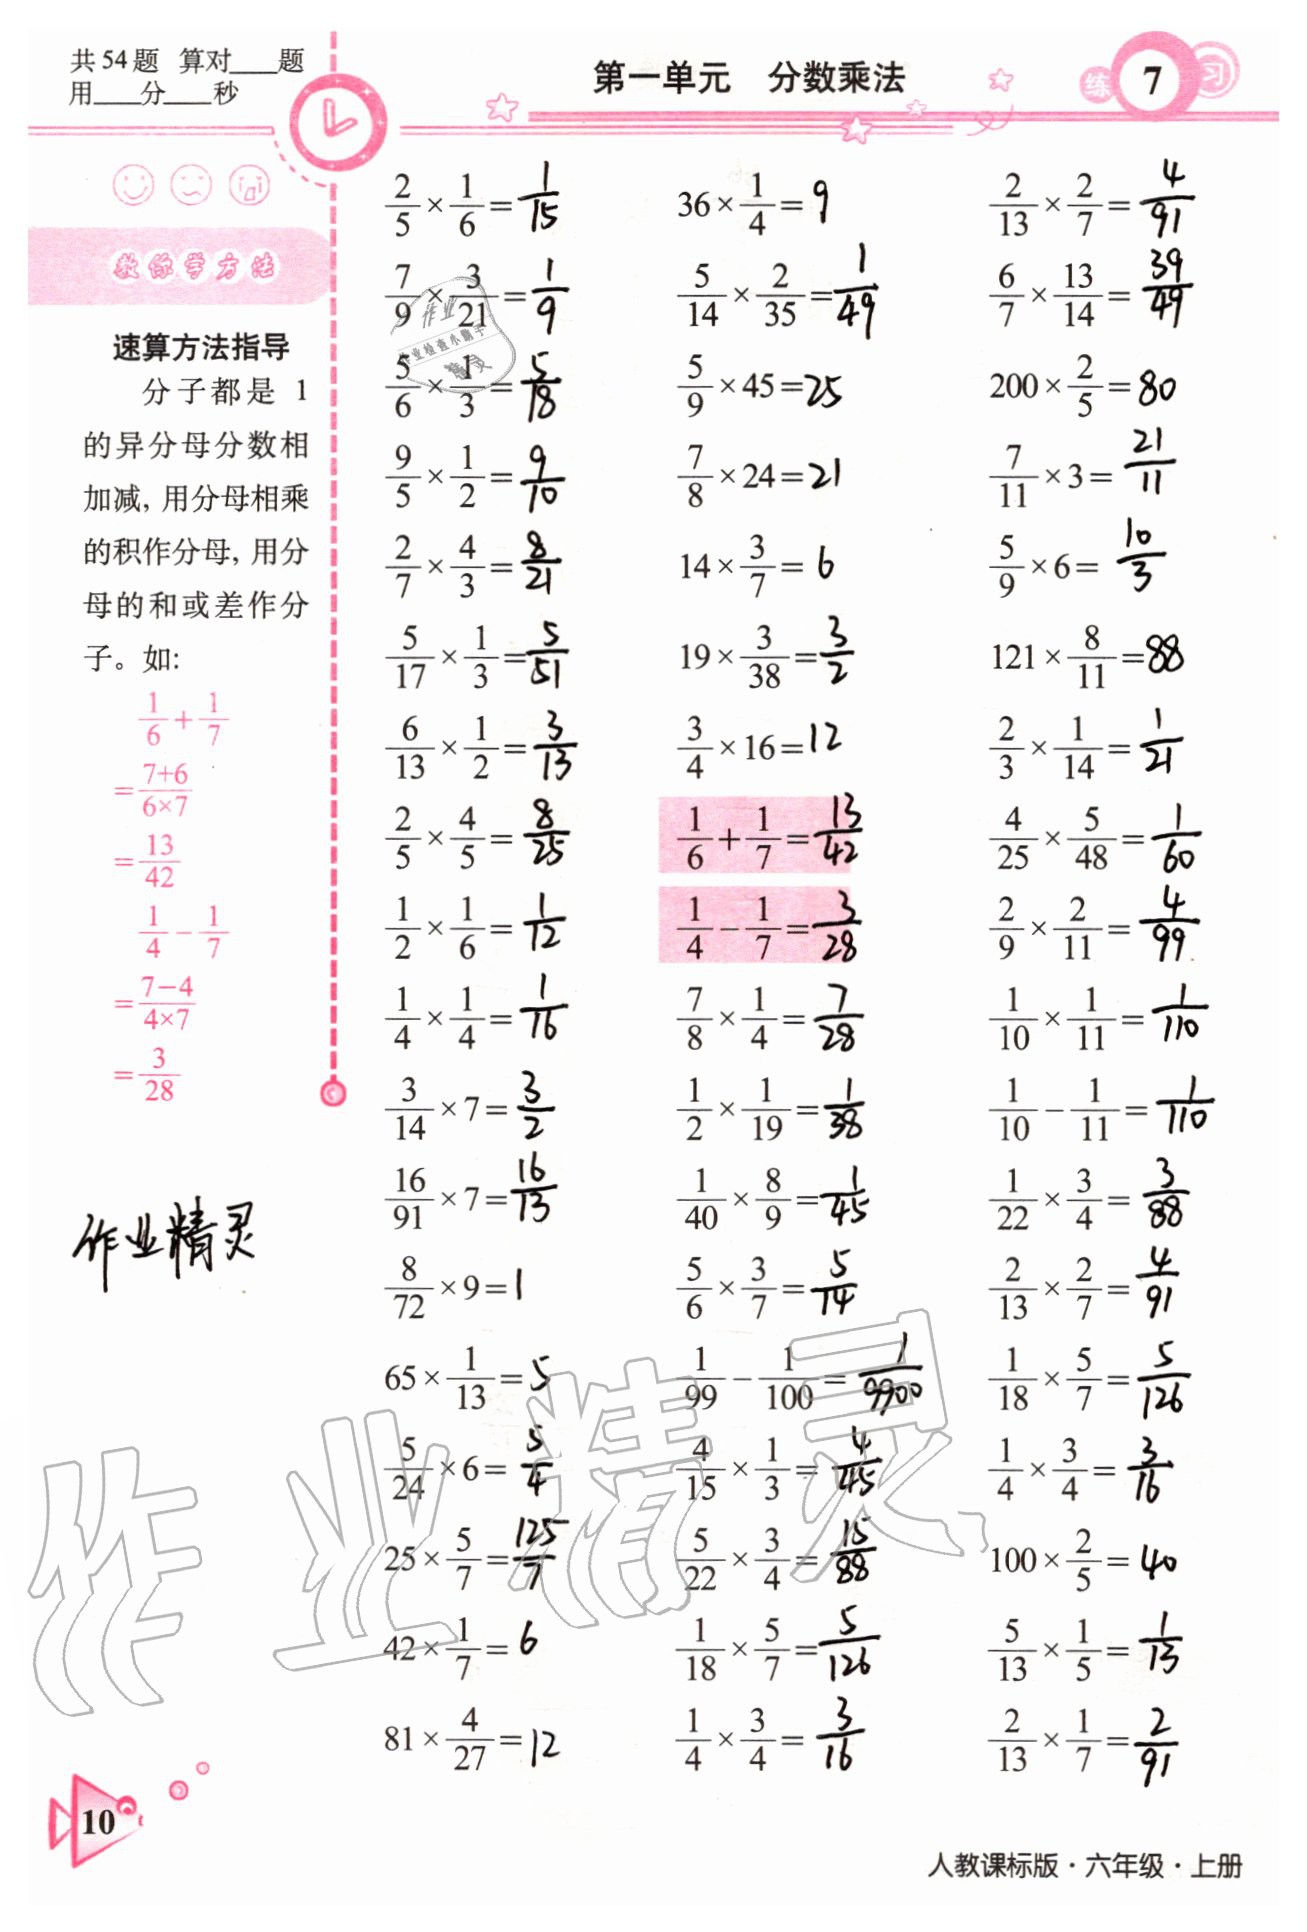 共54题 算对____题
用____分____秒
第一单元 分数乘法
练 7 习
教你学方法
速算方法指导
分子都是 1
的异分母分数相
加减, 用分母相乘
的积作分母, 用分
母的和或差作分
子。如:
1/6 + 1/7
= (7+6)/(6×7)
= 13/42
1/4 − 1/7
= (7−4)/(4×7)
= 3/28
作业精灵
2/5 × 1/6 = 1/15
7/9 × 3/21 = 1/9
5/6 × 1/3 = 5/18
9/5 × 1/2 = 9/10
2/7 × 4/3 = 8/21
5/17 × 1/3 = 5/51
6/13 × 1/2 = 3/13
2/5 × 4/5 = 8/25
1/2 × 1/6 = 1/12
1/4 × 1/4 = 1/16
3/14 × 7 = 3/2
16/91 × 7 = 16/13
8/72 × 9 = 1
65 × 1/13 = 5
5/24 × 6 = 5/4
25 × 5/7 = 125/7
42 × 1/7 = 6
81 × 4/27 = 12
36 × 1/4 = 9
5/14 × 2/35 = 1/49
5/9 × 45 = 25
7/8 × 24 = 21
14 × 3/7 = 6
19 × 3/38 = 3/2
3/4 × 16 = 12
1/6 + 1/7 = 13/42
1/4 − 1/7 = 3/28
7/8 × 1/4 = 7/28
1/2 × 1/19 = 1/38
1/40 × 8/9 = 1/45
5/6 × 3/7 = 5/14
1/99 − 1/100 = 1/9900
4/15 × 1/3 = 4/45
5/22 × 3/4 = 15/88
1/18 × 5/7 = 5/126
1/4 × 3/4 = 3/16
2/13 × 2/7 = 4/91
6/7 × 13/14 = 39/49
200 × 2/5 = 80
7/11 × 3 = 21/11
5/9 × 6 = 10/3
121 × 8/11 = 88
2/3 × 1/14 = 1/21
4/25 × 5/48 = 1/60
2/9 × 2/11 = 4/99
1/10 × 1/11 = 1/110
1/10 − 1/11 = 1/110
1/22 × 3/4 = 3/88
2/13 × 2/7 = 4/91
1/18 × 5/7 = 5/126
1/4 × 3/4 = 3/16
100 × 2/5 = 40
5/13 × 1/5 = 1/13
2/13 × 1/7 = 2/91
作业
作业检查小助手
精灵
作业精灵
10
人教课标版·六年级·上册